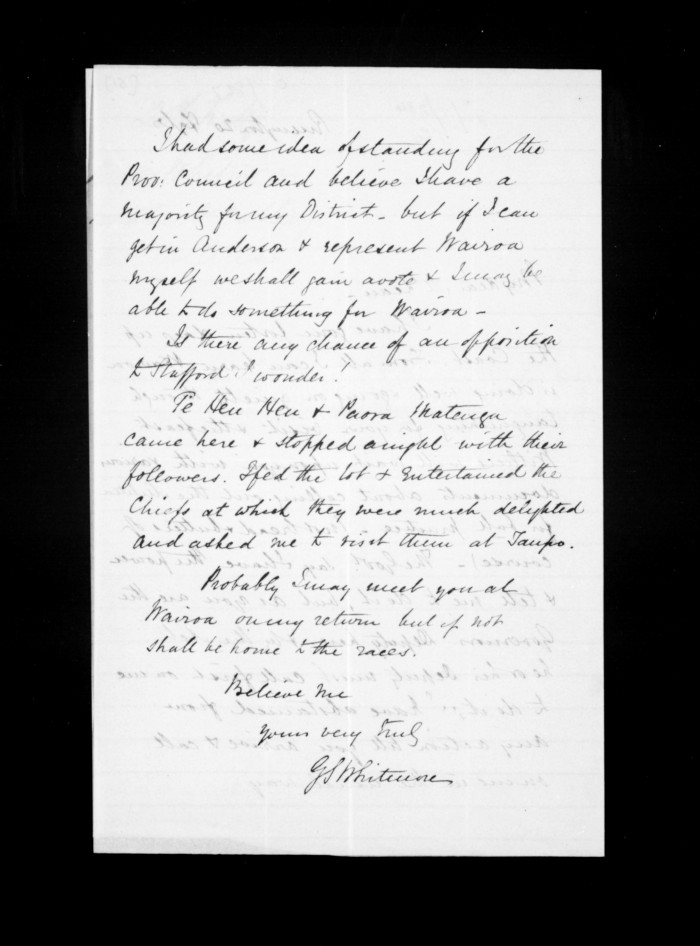 I had some idea of standing for the
Prov: Council and believe I have a
majority for my District - but if I can
get in Anderson & represent Wairoa
myself we shall gain a vote & I may be
able to do something for Wairoa -
Is there any chance of an opposition
to Stafford I wonder!
Te Heu Heu & Paora Matenga
came here & stopped a night with their
followers. I fed the lot & Entertained the
Chiefs at which they were much delighted
and asked me to visit them at Taupo.
Probably I may meet you at
Wairoa on my return but if not
shall be home to the races.
Believe me
yours very truly
GS Whitmore